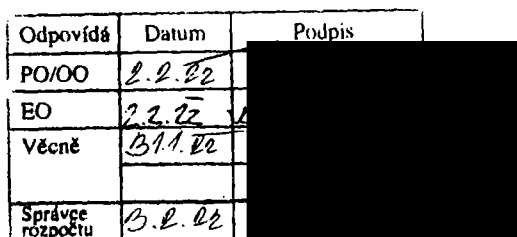 Odpovídá Datum Podpis
PO/OO 2.2.22
EO 2.2.22
Věcně 31.1.22
Správce
rozpočtu 3.2.22